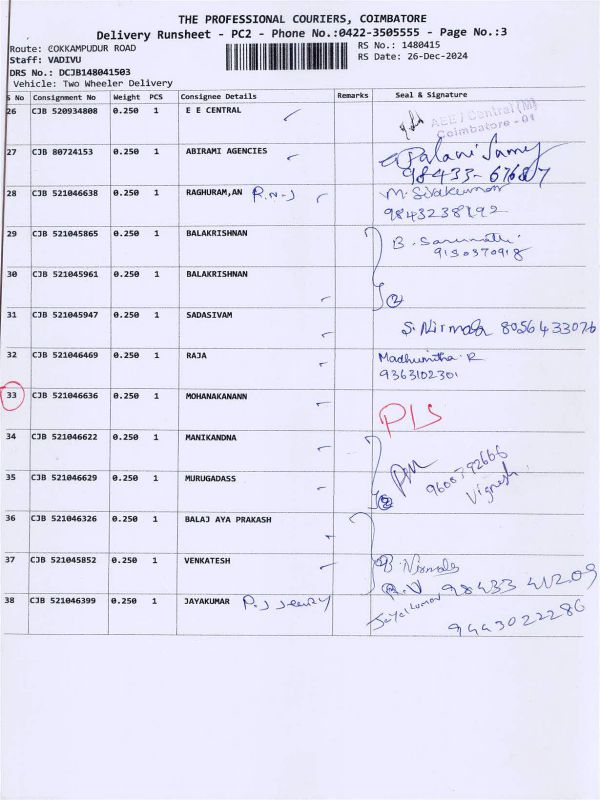 THE PROFESSIONAL COURIERS, COIMBATORE
Delivery Runsheet - PC2 - Phone No.:0422-3505555 - Page No.:3
Route: COKKAMPUDUR ROAD RS No.: 1480415
Staff: VADIVU RS Date: 26-Dec-2024
DRS No.: DCJB148041503
Vehicle: Two Wheeler Delivery
S No Consignment No Weight PCS Consignee Details Remarks Seal & Signature
26 CJB 520934808 0.250 1 E E CENTRAL AEE / Central (M)
Coimbatore - 01
27 CJB 80724153 0.250 1 ABIRAMI AGENCIES Palani Samy
98433-67687
28 CJB 521046638 0.250 1 RAGHURAM,AN R.N-J M. Sivakumar
9843238192
29 CJB 521045865 0.250 1 BALAKRISHNAN B. Sarumathi
9150370918
30 CJB 521045961 0.250 1 BALAKRISHNAN 2
31 CJB 521045947 0.250 1 SADASIVAM S. Nirmala 8056433076
32 CJB 521046469 0.250 1 RAJA Madhumitha. R
9363102301
33 CJB 521046636 0.250 1 MOHANAKANANN PLS
34 CJB 521046622 0.250 1 MANIKANDNA
9600792666
35 CJB 521046629 0.250 1 MURUGADASS 2 Vignesh
36 CJB 521046326 0.250 1 BALAJ AYA PRAKASH
37 CJB 521045852 0.250 1 VENKATESH B. Nirmala
R.V 98433 41209
38 CJB 521046399 0.250 1 JAYAKUMAR Jayakumar
9443022286